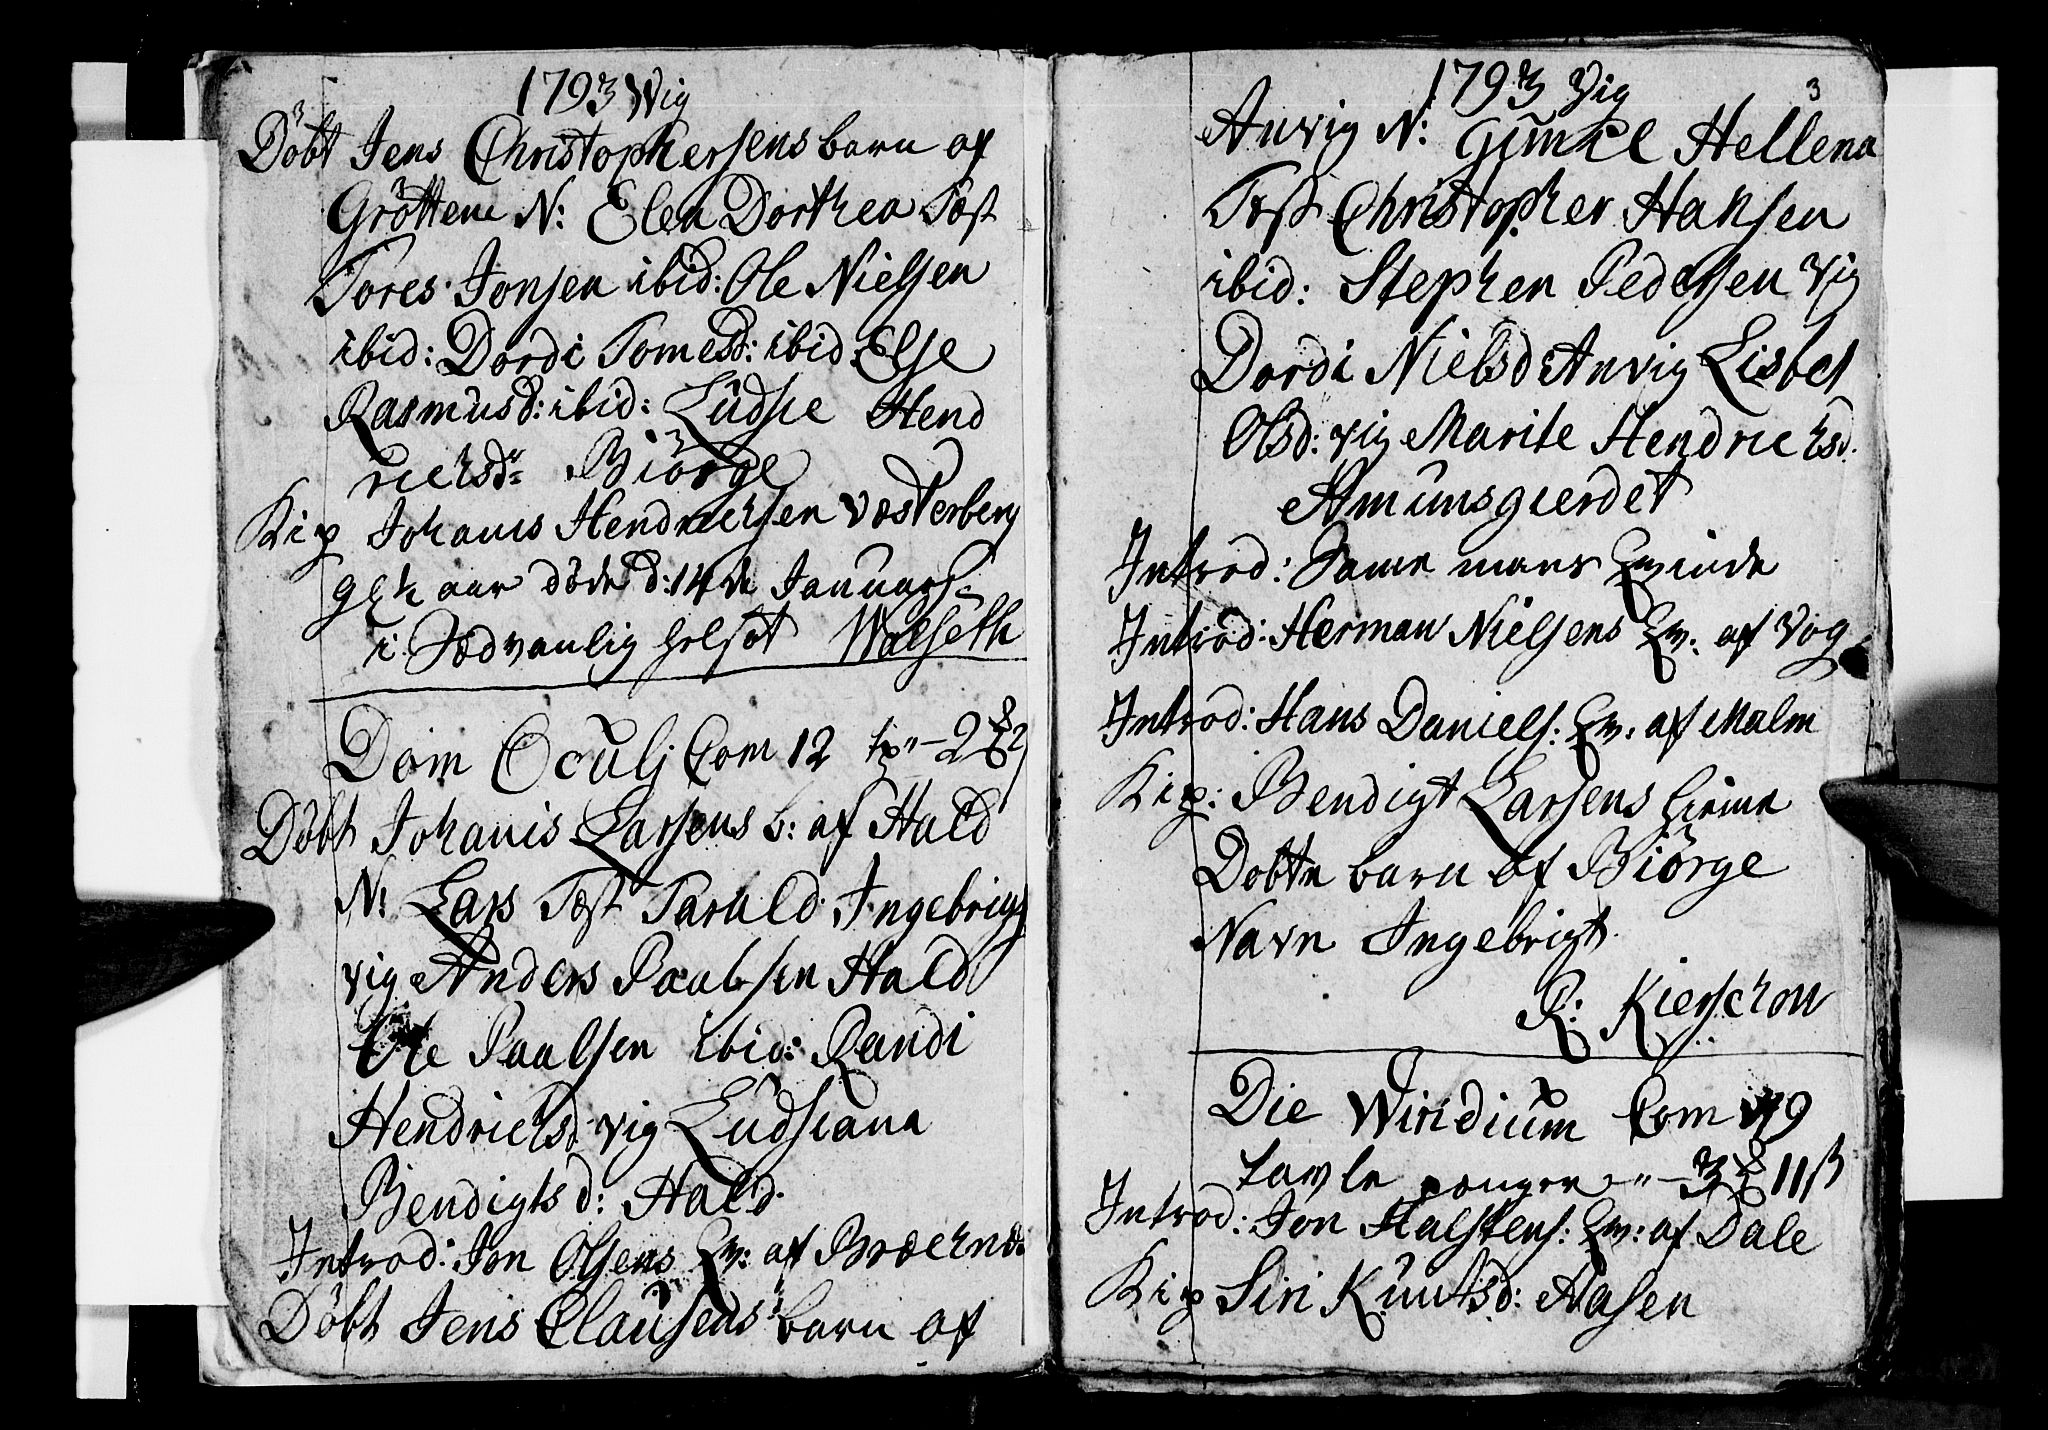 1793 Vig
Döbt Jens Christophersens barn af
Gröttem N: Elen Dorthea Test
Tores Jonsen ibid: Ole Nielsen
ibid: Dordi Tomesd: ibid Else
Rasmusd: ibid: Ludsie Hend
richsdr Biörge
Kip Johanis Hendrichsen Vesterberg
aar döde d: 14de Januarj
i Sædvanlig helset Walseth
Dom Oculj Com 12 2
Döbt Johanis Larsens b: af Hald
N: Lars Test Taruld Ingebrigts
vig Anders Paalsen Hald
Ole Paalsen ibid: Randi
Hendrichsd vig Ludsiana
Bendigtsd: Hald.
Introd: Jon Olsens Qv: af
Döbt Jens Clausens barn af
1793 Vig
3
Anvig N: Hellena
Test Christopher Hansen
ibid: Stephen Pedersen Vig
Dordi Nielsd Anvig Lisbet
Olsd: vig Marite Hendrichsd.
Amunsgierdet
Introd: Same mans Qvinde
Introd: Herman Nielsens Qv: af Vog
Introd: Hans Daniels: Qv: af Malm
Kip: Bendigt Larsens hieme
Döbte barn af Biörge
Navn Ingebrigt
R: Kierschow
Die Wiridium Com 19
tavle penger 3 11 ß
Introd: Jon Halstens: Qv: af Dale
Kip Siri Knutsd: Aasen